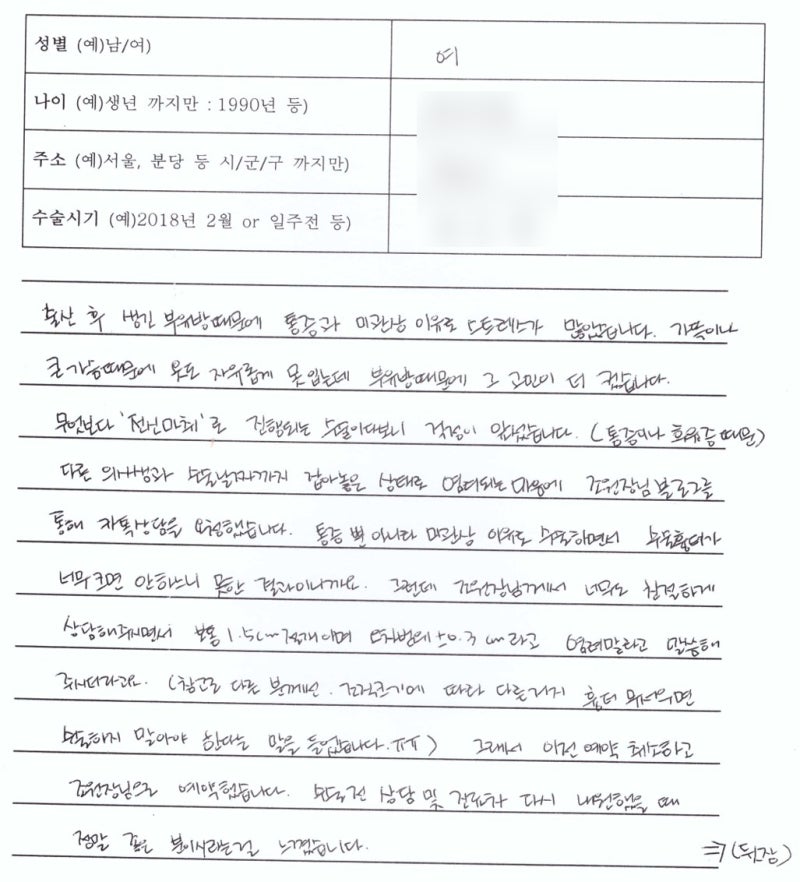 성별 (예)남/여)
여
나이 (예)생년 까지만 : 1990년 등)
주소 (예)서울, 분당 등 시/군/구 까지만)
수술시기 (예)2018년 2월 or 일주전 등)
출산 후 생긴 부유방때문에 통증과 미관상 이유로 스트레스가 많았습니다. 가뜩이나
큰가슴때문에 옷도 자유롭게 못입는데 부유방때문에 그 고민이 더 컸습니다.
무엇보다 '전신마취'로 진행되는 수술이다보니 걱정이 앞섰습니다. (통증이나 후유증때문)
다른 의사샘과 수술날짜까지 잡아놓은 상태로 염려되는 마음에 조원장님 블로그를
통해 카톡상담을 요청했습니다. 통증 뿐 아니라 미관상 이유로 수술하면서 수술흉터가
너무크면 안하느니 못한 결과이니까요. 그런데 조원장님께서 너무도 친절하게
상담해주시면서 보통 1.5cm 절개이며 오차범위 ±0.3cm라고 염려말라고 말씀해
주시더라고요. (참고로 다른 분께선, 조직크기에 따라 다른거지 흉터 무서우면
수술하지 말아야 한다는 말을 들었습니다.ㅠㅠ) 그래서 이전 예약 취소하고
조원장님으로 예약했습니다. 수술전 상담 및 진료차 다시 내원했을 때
정말 좋은 분이시라는걸 느꼈습니다.
⇒ (뒷장)